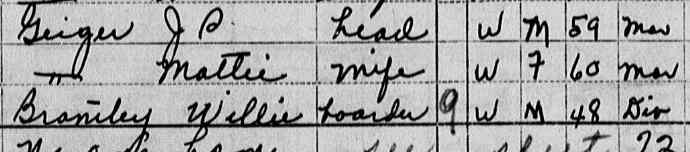 Geiger J P. Head W M 59 Mar
" Mattie Wife W F 60 Mar
Brantley Willie boarder 9 W M 48 Div
see sheet